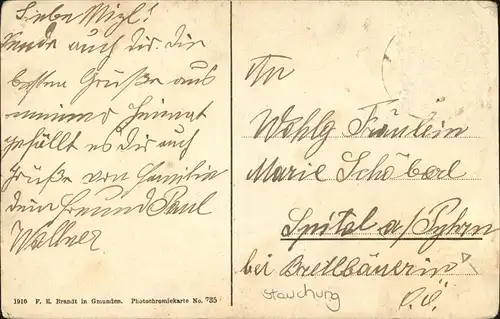 Liebe Mizl!
Sende auch dir die
besten Grüße aus
meiner Heimat
gefällt es dir auch
Grüße von Familie
dein Freund Paul
Wallner
1910 F. E. Brandt in Gmunden. Photochromiekarte No. 735
An
Wohlg Fräulein
Marie Schöberl
Spital a/Pyhrn
bei Brettbäuerin
O.Ö.
Stauchung